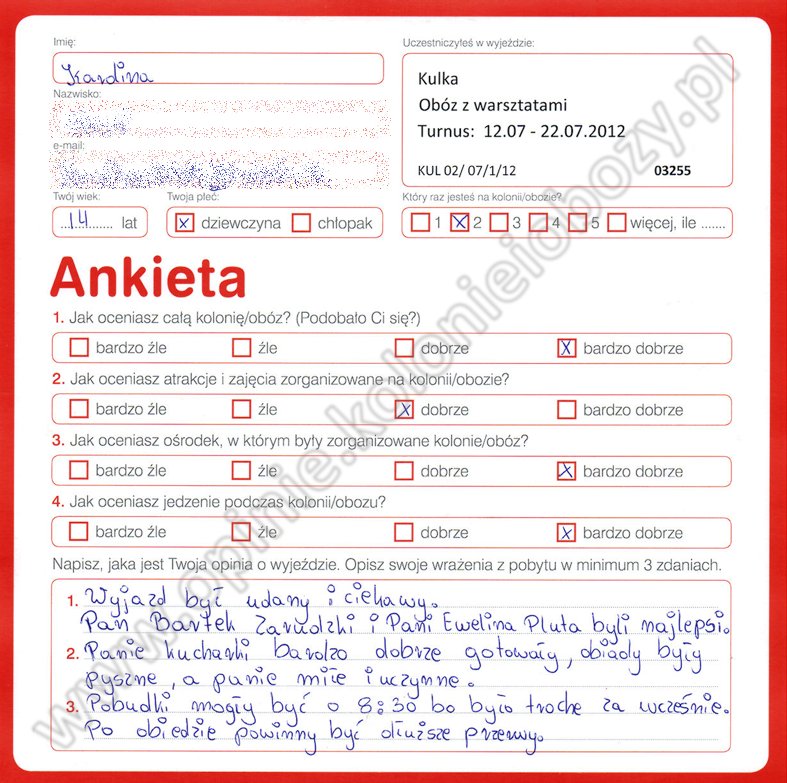 Imię:
Uczestniczyłeś w wyjeździe:
Karolina
Kulka
Obóz z warsztatami
Turnus: 12.07 - 22.07.2012
KUL 02/ 07/1/12 03255
Nazwisko:
e-mail:
Twój wiek:
Twoja płeć:
Który raz jesteś na kolonii/obozie?
14 lat
x dziewczyna chłopak
1 x 2 3 4 5 więcej, ile .......
Ankieta
1. Jak oceniasz całą kolonię/obóz? (Podobało Ci się?)
bardzo źle źle dobrze x bardzo dobrze
2. Jak oceniasz atrakcje i zajęcia zorganizowane na kolonii/obozie?
bardzo źle źle x dobrze bardzo dobrze
3. Jak oceniasz ośrodek, w którym były zorganizowane kolonie/obóz?
bardzo źle źle dobrze x bardzo dobrze
4. Jak oceniasz jedzenie podczas kolonii/obozu?
bardzo źle źle dobrze x bardzo dobrze
Napisz, jaka jest Twoja opinia o wyjeździe. Opisz swoje wrażenia z pobytu w minimum 3 zdaniach.
1. Wyjazd był udany i ciekawy.
Pan Bartek Zarudzki i Pani Ewelina Pluta byli najlepsi.
2. Panie kucharki bardzo dobrze gotowały, obiady były
pyszne, a panie miłe i uczynne.
3. Pobudki mogły być o 8:30 bo było troche za wcześnie.
Po obiedzie powinny być dłuższe przerwy.
www.opinie.kolonieiobozy.pl